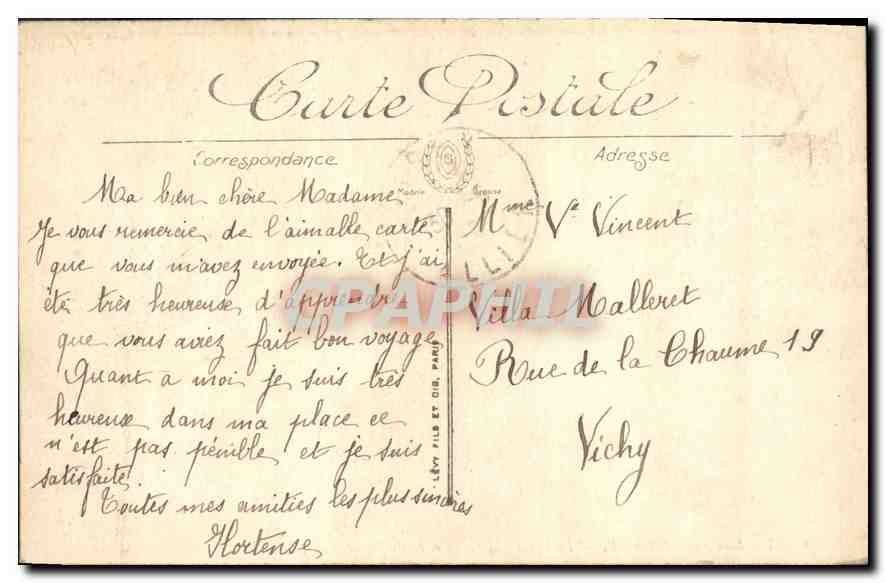 Carte Postale
Correspondance
Adresse
Ma bien chère Madame
Je vous remercie de l'aimable carte
que vous m'avez envoyée. Et j'ai
été très heureuse d'apprendre
que vous aviez fait bon voyage
Quant à moi je suis très
heureuse dans ma place ce
n'est pas pénible et je suis
satisfaite.
Toutes mes amitiés les plus sincères
Hortense
LÉVY FILS ET CIE, PARIS
Mme Ve Vincent
Villa Malleret
Rue de la Chaume 19
Vichy
CPAPHIL